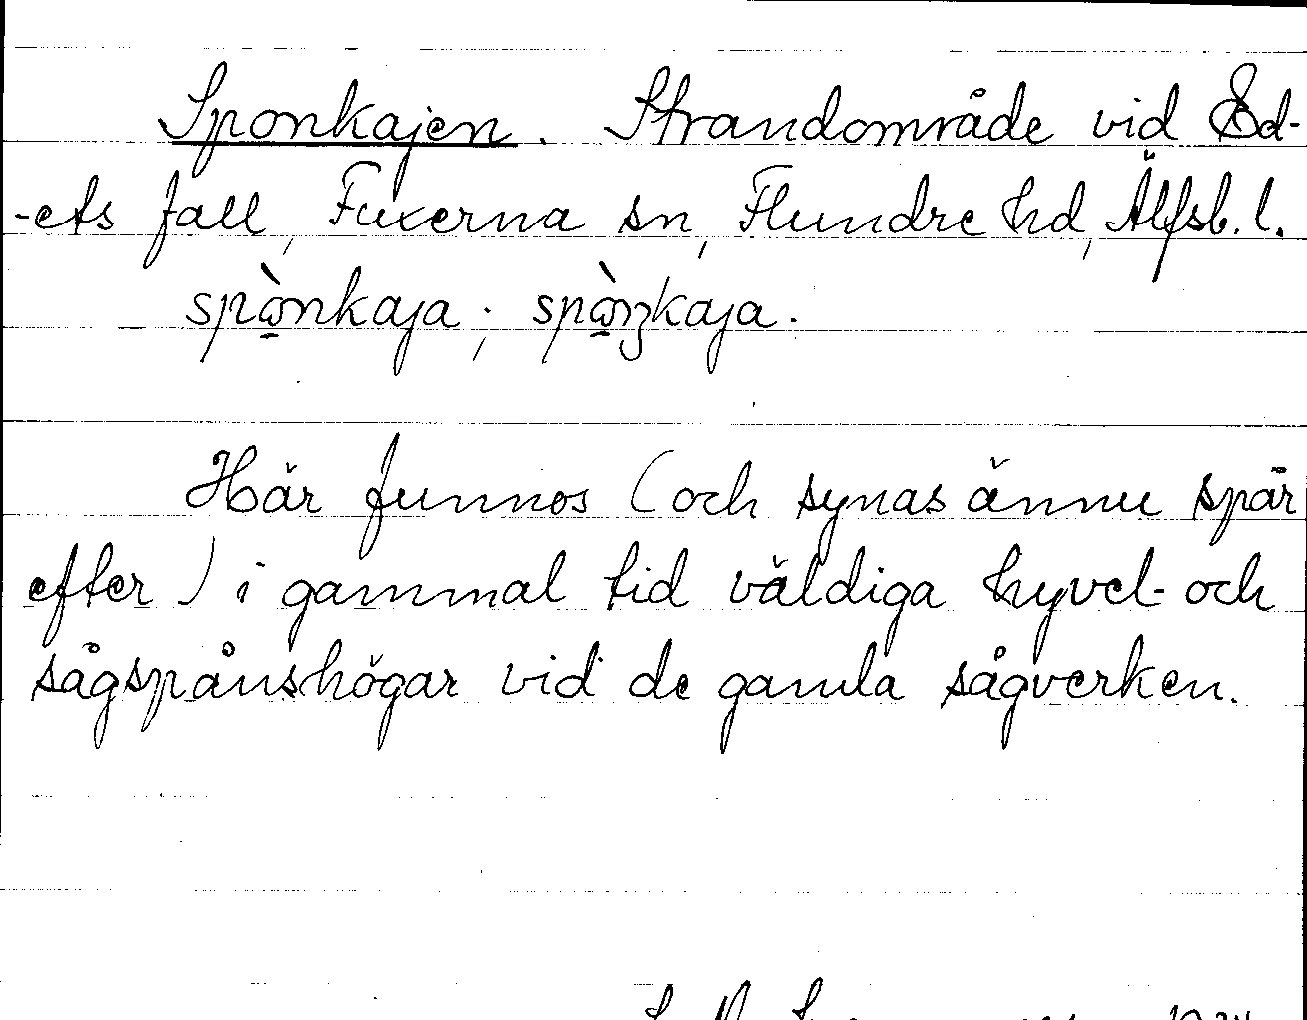 Sponkajen. Strandområde vid Ed-
-ets fall, Fuxerna sn, Flundre hd, Älfsb. l.
spò̱nkaja; spò̱ŋkaja.
Här funnos (och synas ännu spår
efter) i gammal tid väldiga hyvel- och
sågspånshögar vid de gamla sågverken.